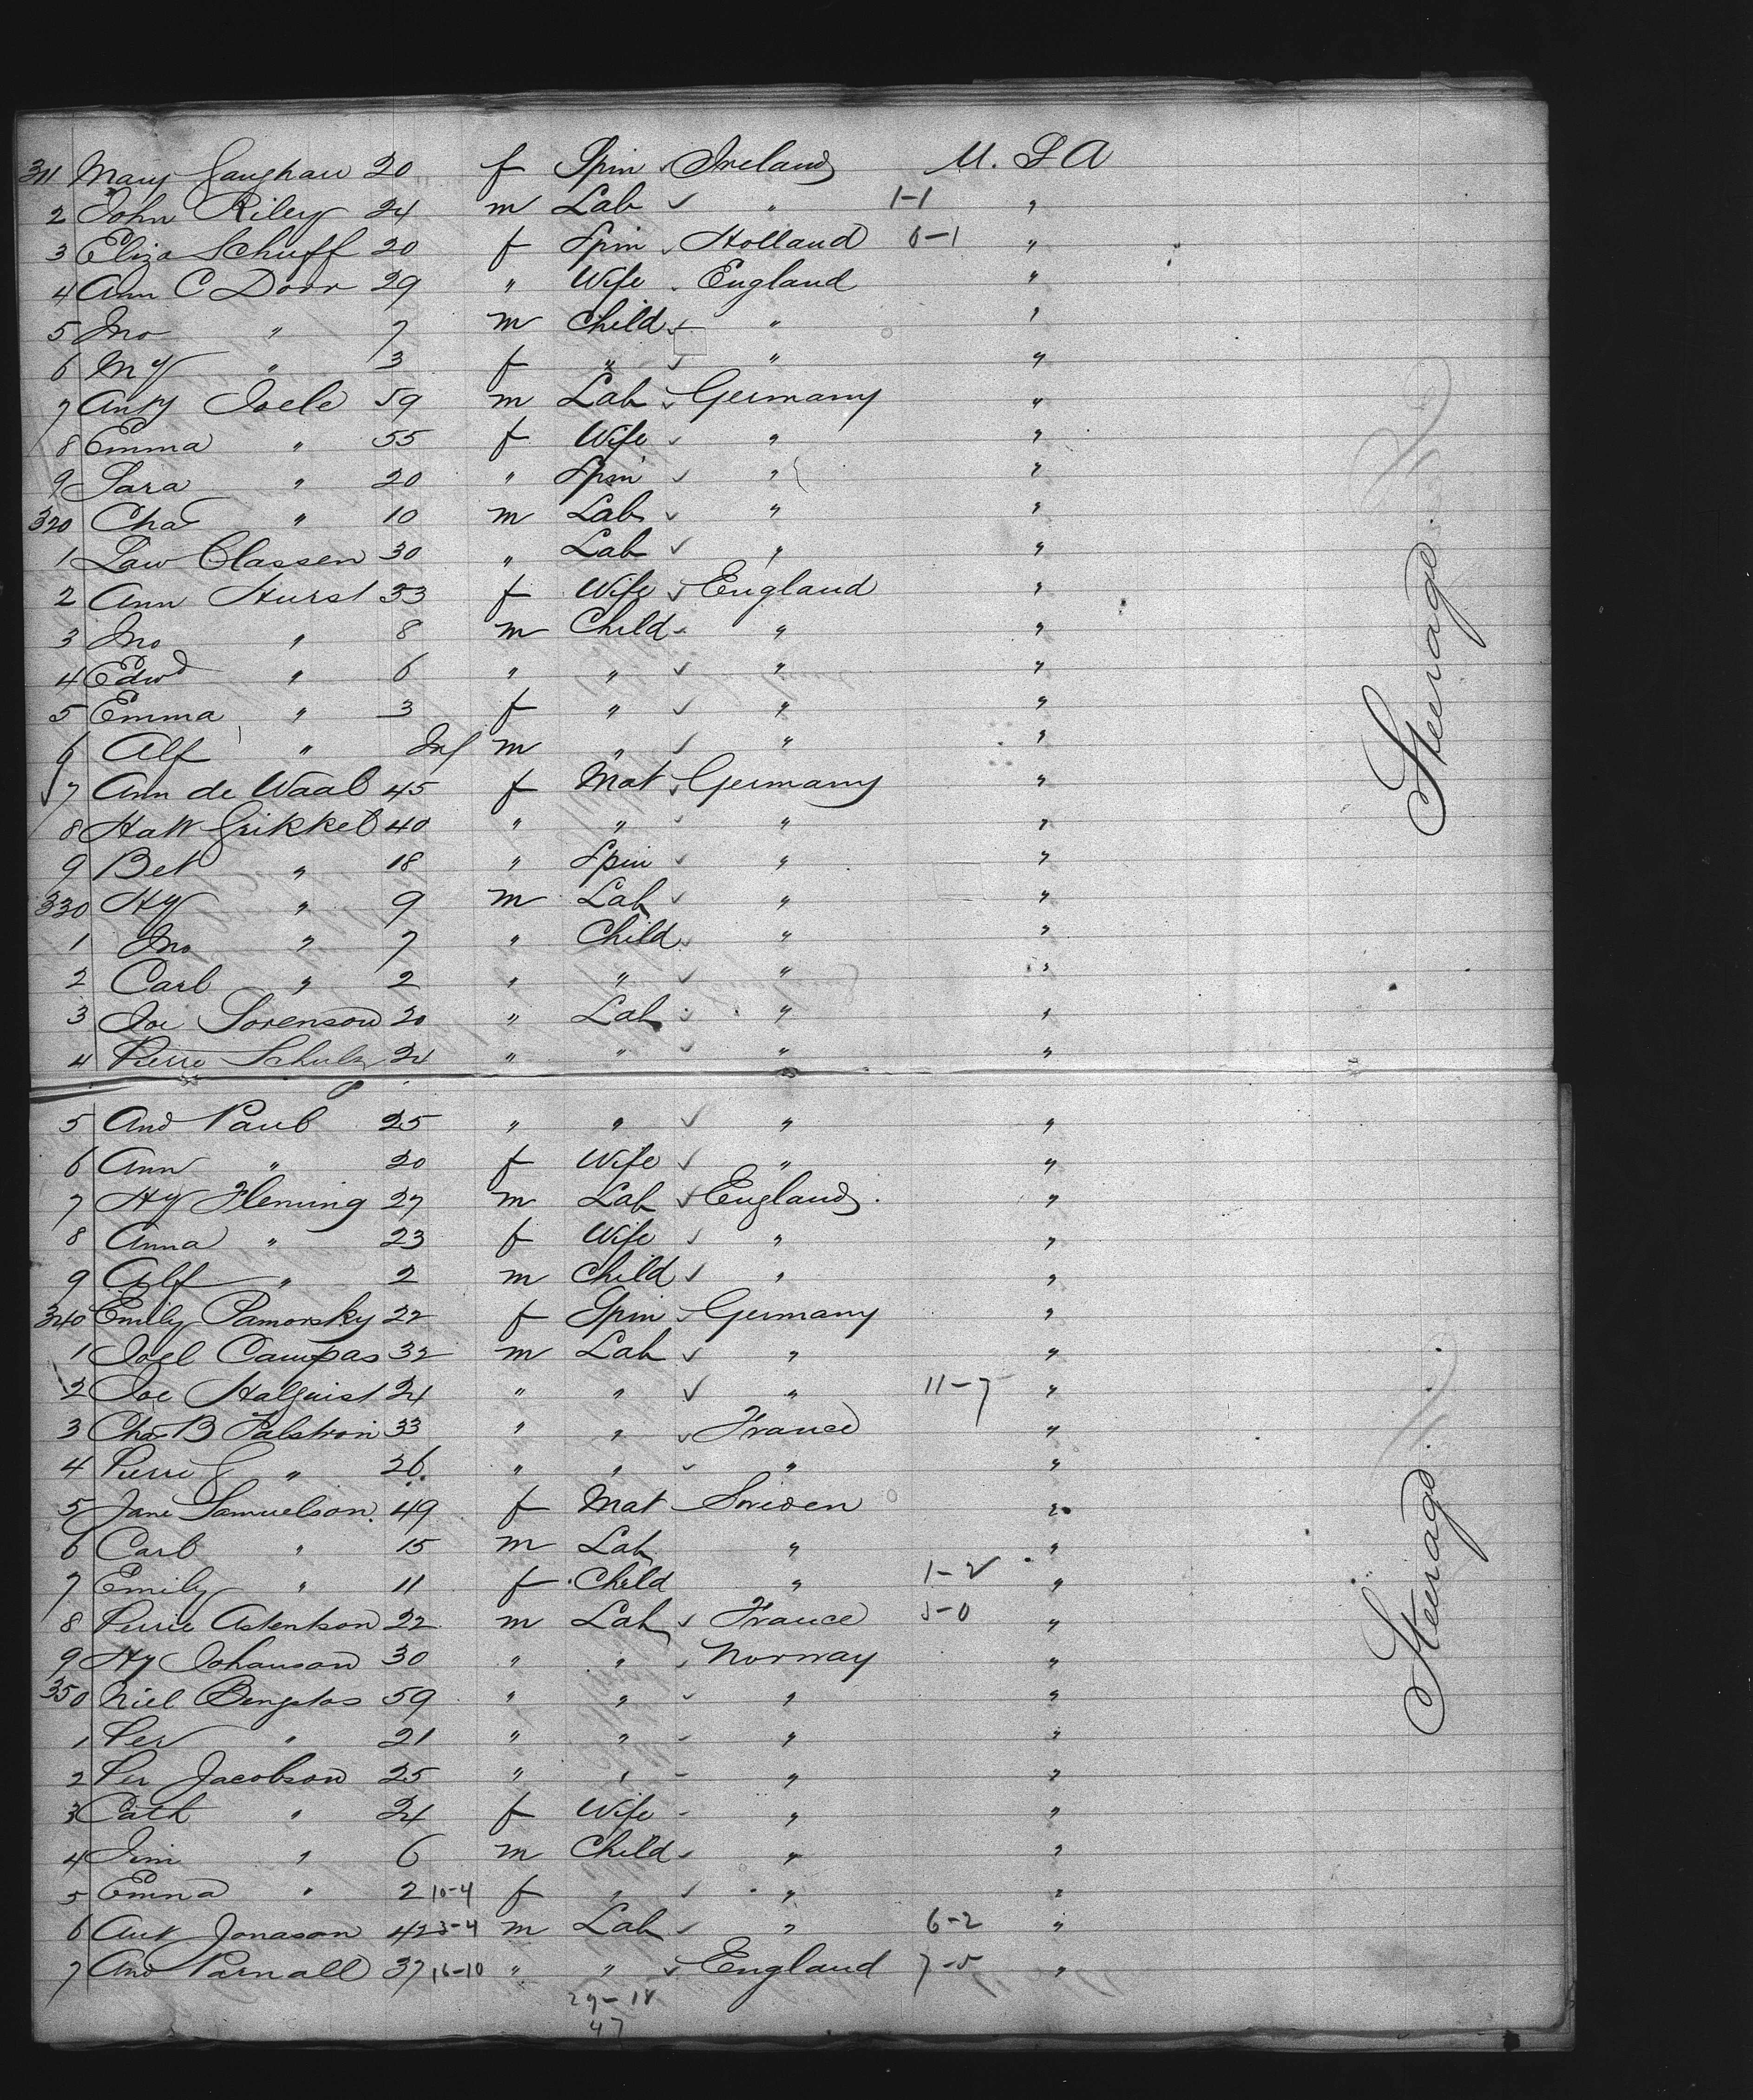 311 Mary Gaughan 20 f Spin Ireland U. S A
2 John Riley 24 m Lab ✓ " 1-1 "
3 Eliza Schuff 20 f Spin Holland 0-1 "
4 Ann C Door 29 " Wife England "
5 Jno " 7 m Child ✓ " "
6 My " 3 f " ✓ " "
7 Anty Joele 59 m Lab ✓ Germany "
8 Emma " 55 f Wife ✓ " "
9 Sara " 20 " Spin ✓ " "
320 Chas " 10 m Lab ✓ " "
1 Law Classen 30 " Lab ✓ " "
2 Ann Hurst 33 f Wife ✓ England "
3 Jno " 8 m Child ✓ " "
4 Edwd " 6 " " ✓ " "
5 Emma " 3 f " ✓ " "
6 Alf " Inf m " ✓ " "
7 Ann de Waal 45 f Mat ✓ Germany "
8 Hatt Grikkel 40 " " ✓ " "
9 Bet " 18 " Spin ✓ " "
330 Hy " 9 m Lab ✓ " "
1 Jno " 7 " Child " "
2 Carl " 2 " " ✓ " "
3 Joe Sorenson 20 " Lab " "
4 Pierre Schulz 24 " " ✓ " "
Steerage
5 And Paul 25 " " ✓ " "
6 Ann " 20 f Wife ✓ " "
7 Hy Fleming 27 m Lab ✓ England "
8 Anna " 23 f Wife ✓ " "
9 Alf " 2 m Child ✓ " "
340 Emily Pamorsky 22 f Spin ✓ Germany "
1 Joel Campas 32 m Lab ✓ " "
2 Joe Halquist 24 " " ✓ " 11-7 "
3 Chas B Palstron 33 " " ✓ France "
4 Pierre G " 26 " " ✓ " "
5 Jane Samuelson 49 f Mat Sweden "
6 Carl " 15 m Lab " "
7 Emily " 11 f Child " 1-2 "
8 Pierre Astenkson 22 m Lab ✓ France 5-0 "
9 Hy Johanson 30 " " ✓ Norway "
350 Niel Bengstos 59 " " ✓ " "
1 Per " 21 " " - " "
2 Per Jacobson 25 " " - " "
3 Cath " 24 f Wife - " "
4 Jim " 6 m Child ✓ " "
5 Emma " 2 10-4 f " ✓ " "
6 Aut Jonason 42 3-4 m Lab ✓ " 6-2 "
7 And Parnall 37 16-10 " " ✓ England 7-5 "
29-18
47
Steerage